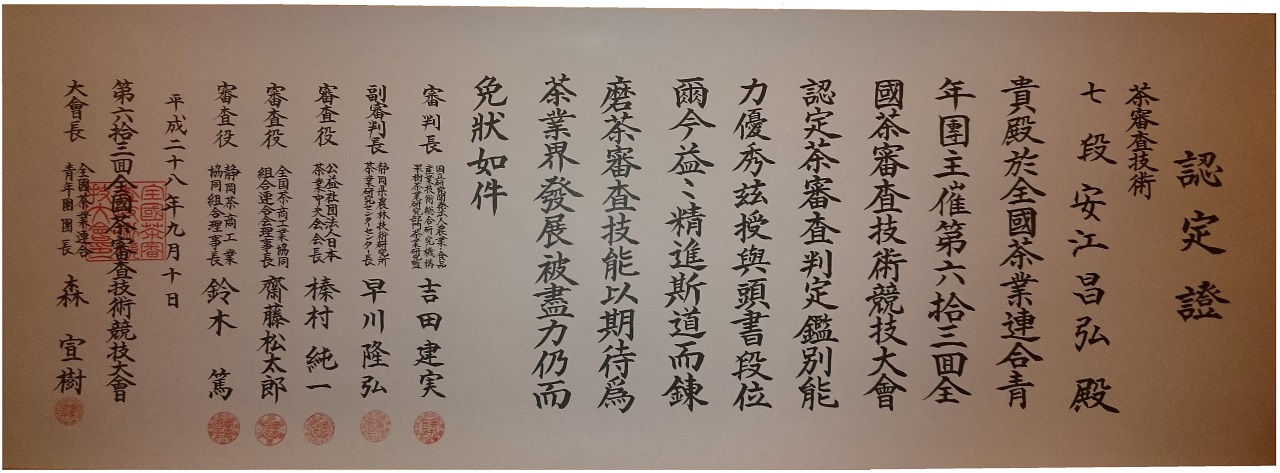 認定證
茶審査技術
七段 安江昌弘 殿
貴殿於全國茶業連合青
年團主催第六拾三回全
國茶審査技術競技大會
認定茶審査判定鑑別能
力優秀玆授與頭書段位
爾今益〻精進斯道而錬
磨茶審査技能以期待爲
茶業界發展被盡力仍而
免狀如件
審判長 吉田建実
副審判長 静岡県農林技術研究所 茶業研究センターセンター長 早川隆弘
審査役 公益社団法人日本 茶業中央会会長 榛村純一
審査役 全国茶商工業協同 組合連合会理事長 齋藤松太郎
審査役 静岡茶商工業 協同組合理事長 鈴木 篤
平成二十八年九月十日
第六拾三回全國茶審査技術競技大會
大會長 全國茶業連合 青年團團長 森 宣樹